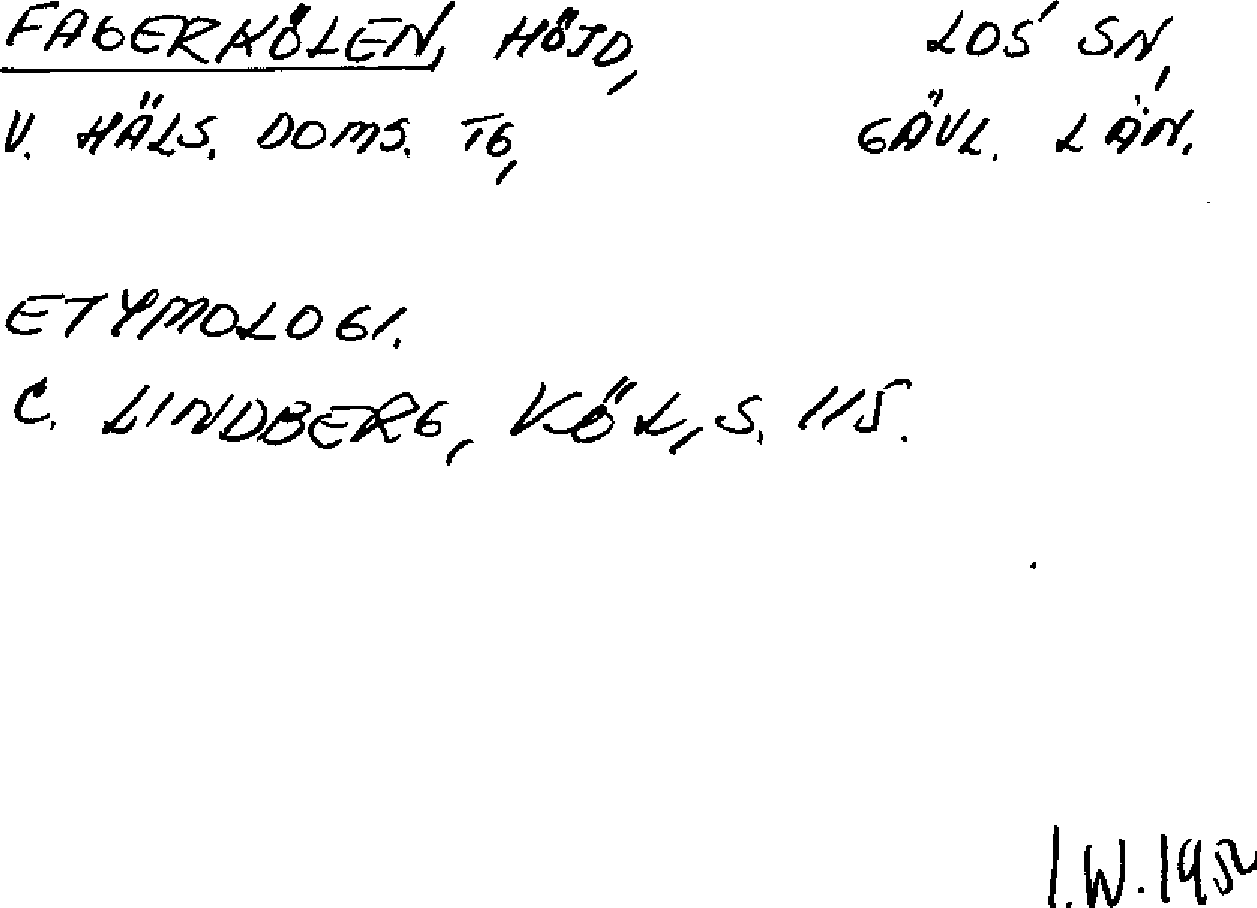 FAGERKÖLEN, HÖJD, LOS SN,
V. HÄLS. DOMS. TG, GÄVL. LÄN.
ETYMOLOGI.
C. LINDBERG, KÖL, S. 115.
I.W.